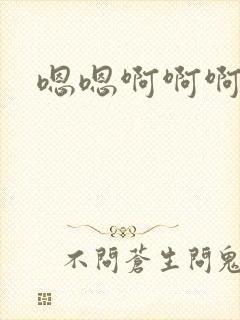 嗯嗯啊啊啊
不問蒼生問鬼